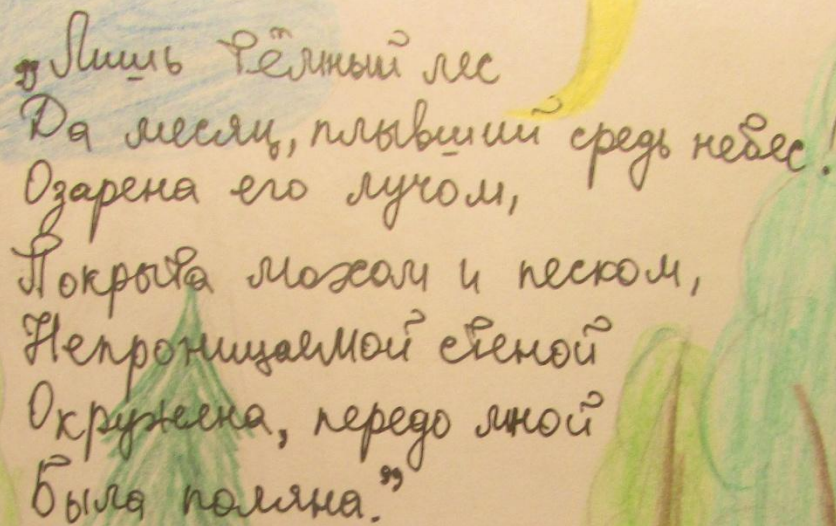 „Лишь тёмный лес
Да месяц, плывший средь небес!
Озарена его лучом,
Покрыта мохом и песком,
Непроницаемой стеной
Окружена, передо мной
Была поляна.”